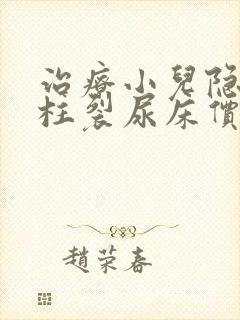 治療小兒隐
柱裂尿床價
趙荣春